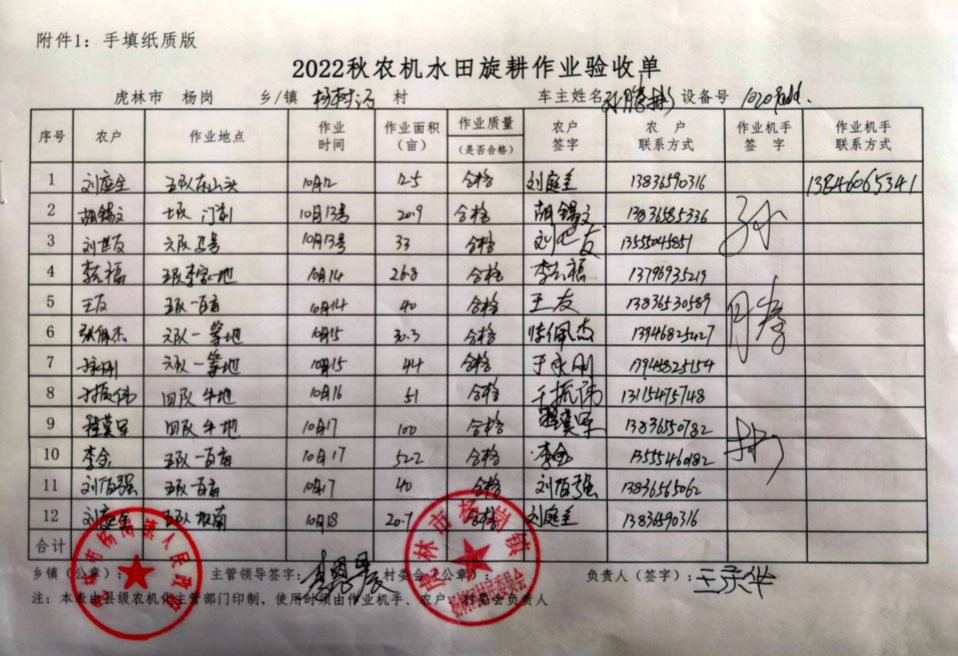 附件1：手填纸质版
2022秋农机水田旋耕作业验收单
虎林市 杨岗 乡/镇 杨树河 村 车主姓名 设备号
序号 农户 作业地点 作业时间 作业面积（亩） 作业质量（是否合格） 农户签字 农户联系方式 作业机手签字 作业机手联系方式
1 刘庭全 五队东山头 10月12 125 合格 13836590316 13846065341
2 胡锡文 七队 10月13号 20.9 合格 胡锡文 13836585336
3 刘世友 六队 10月13号 33 合格 刘世友 13555045851
4 李云福 五队李家地 10月14 26.8 合格 李云福 13796935219
5 王友 五队一百亩 10月14 40 合格 王友 13836530589
6 张佩杰 六队一等地 10月15 30.3 合格 张佩杰 13946825427
7 于永刚 六队一等地 10月15 44 合格 于永刚 13945825154
8 于振伟 四队牛地 10月16 51 合格 于振伟 13115475748
9 四队牛地 10月17 100 合格 13836550782
10 李金 五队一百亩 10月17 52.2 合格 李金 13555460182
11 刘百强 五队百亩 10月17 40 合格 刘百强 13836565062
12 五队 10月18 20.7 合格 13836590316
合计
乡镇（公章）： 主管领导签字： 村委会（公章）： 负责人（签字）：
注：本表由县级农机化主管部门印制，使用时须由作业机手、农户、村委会负责人